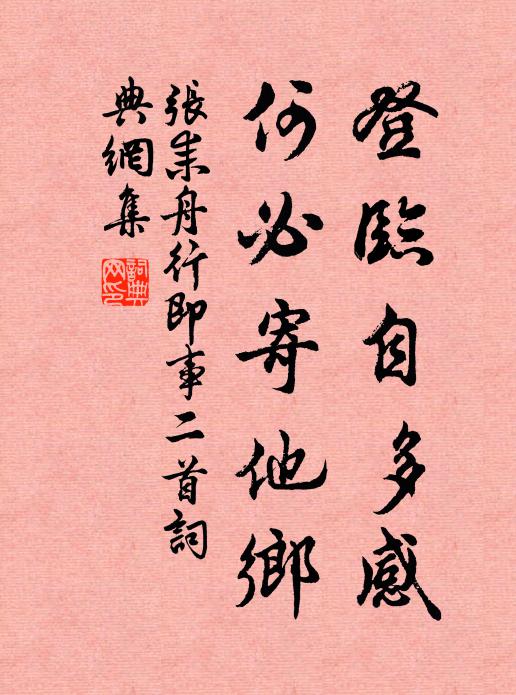 登臨自多感
何必寄他鄉
張耒舟行即事二首詞
典網集
詞典
网印